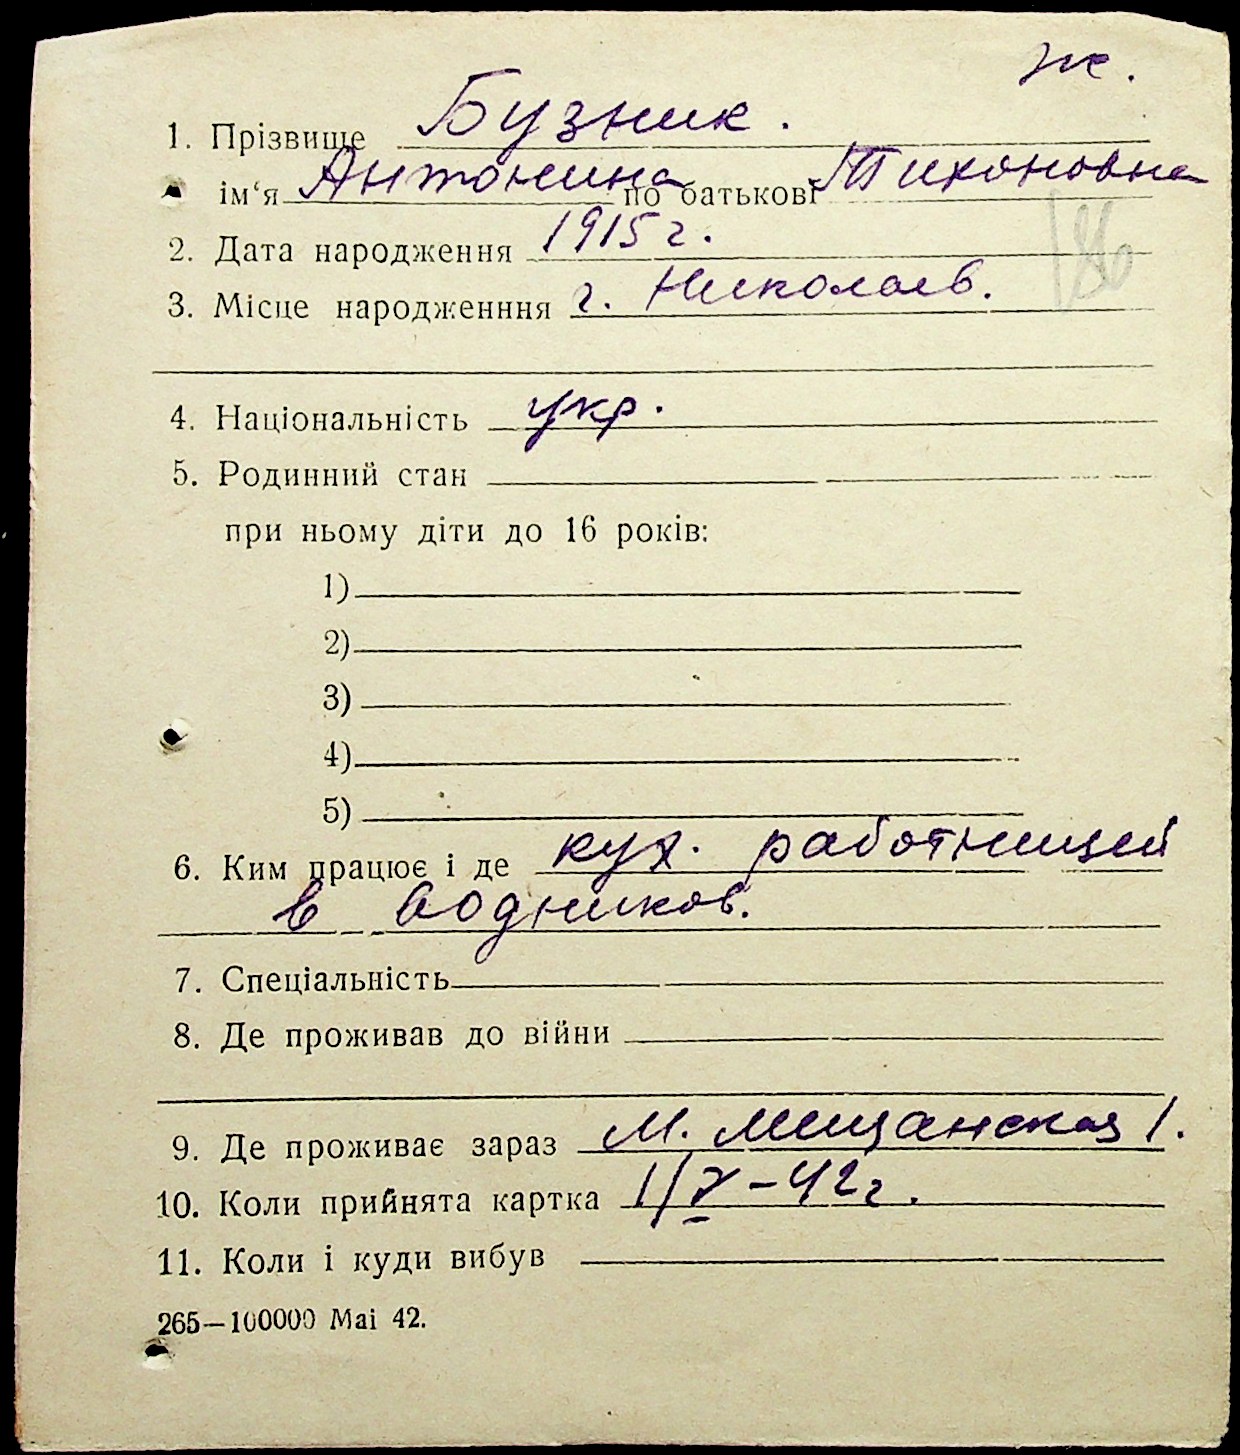 ж.
1. Прізвище Бузник.
ім‘я Антонина по батькові Тихоновна
2. Дата народження 1915 г.
186
3. Місце народженння г. Николаев.
4. Національність укр.
5. Родинний стан
при ньому діти до 16 років:
1)
2)
3)
4)
5)
6. Ким працює і де кух. работницей
в водников.
7. Спеціальність
8. Де проживав до війни
9. Де проживає зараз М. Мещанская 1.
10. Коли прийнята картка 1/X–42 г.
11. Коли і куди вибув
265—100000 Mai 42.